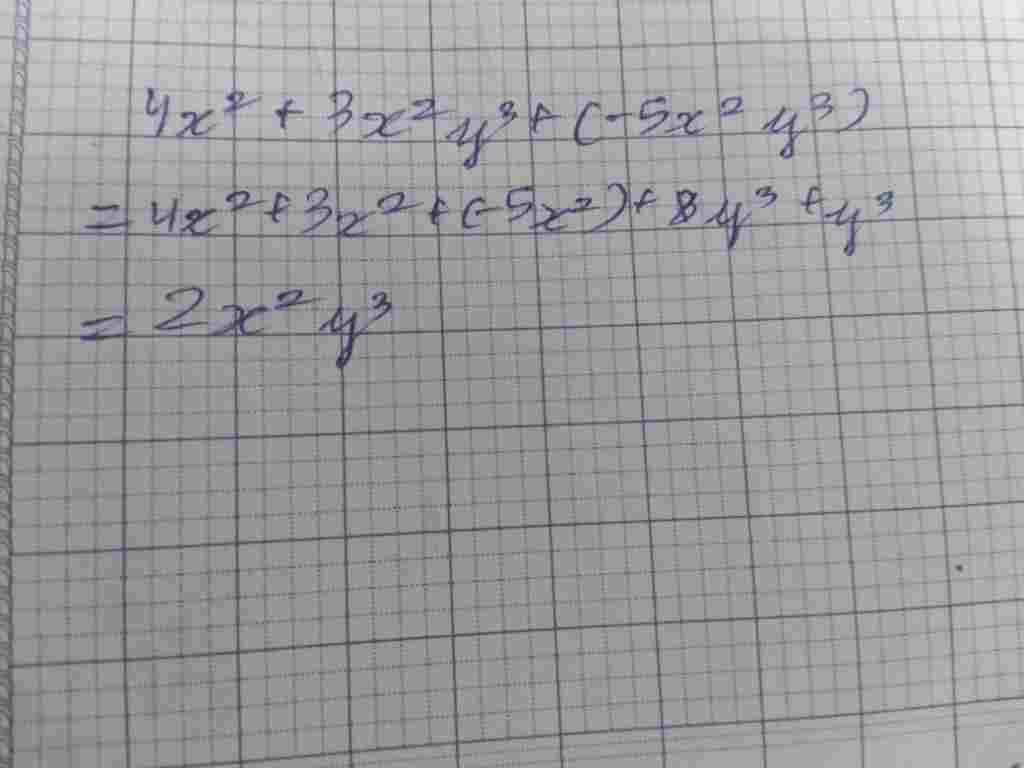 4x² + 3x² y³ + (-5x² y³)
= 4x² + 3x² + (-5x²) + 8y³ + y³
= 2x² y³